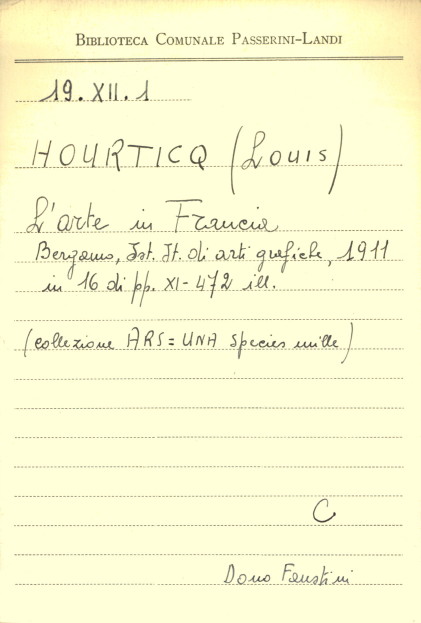 BIBLIOTECA COMUNALE PASSERINI-LANDI
19. XII. 1
HOURTICQ (Louis)
L'arte in Francia
Bergamo, Ist. It. di arti grafiche, 1911
in 16 di pp. XI-472 ill.
(collezione ARS = UNA species mille)
C
Dono Faustini